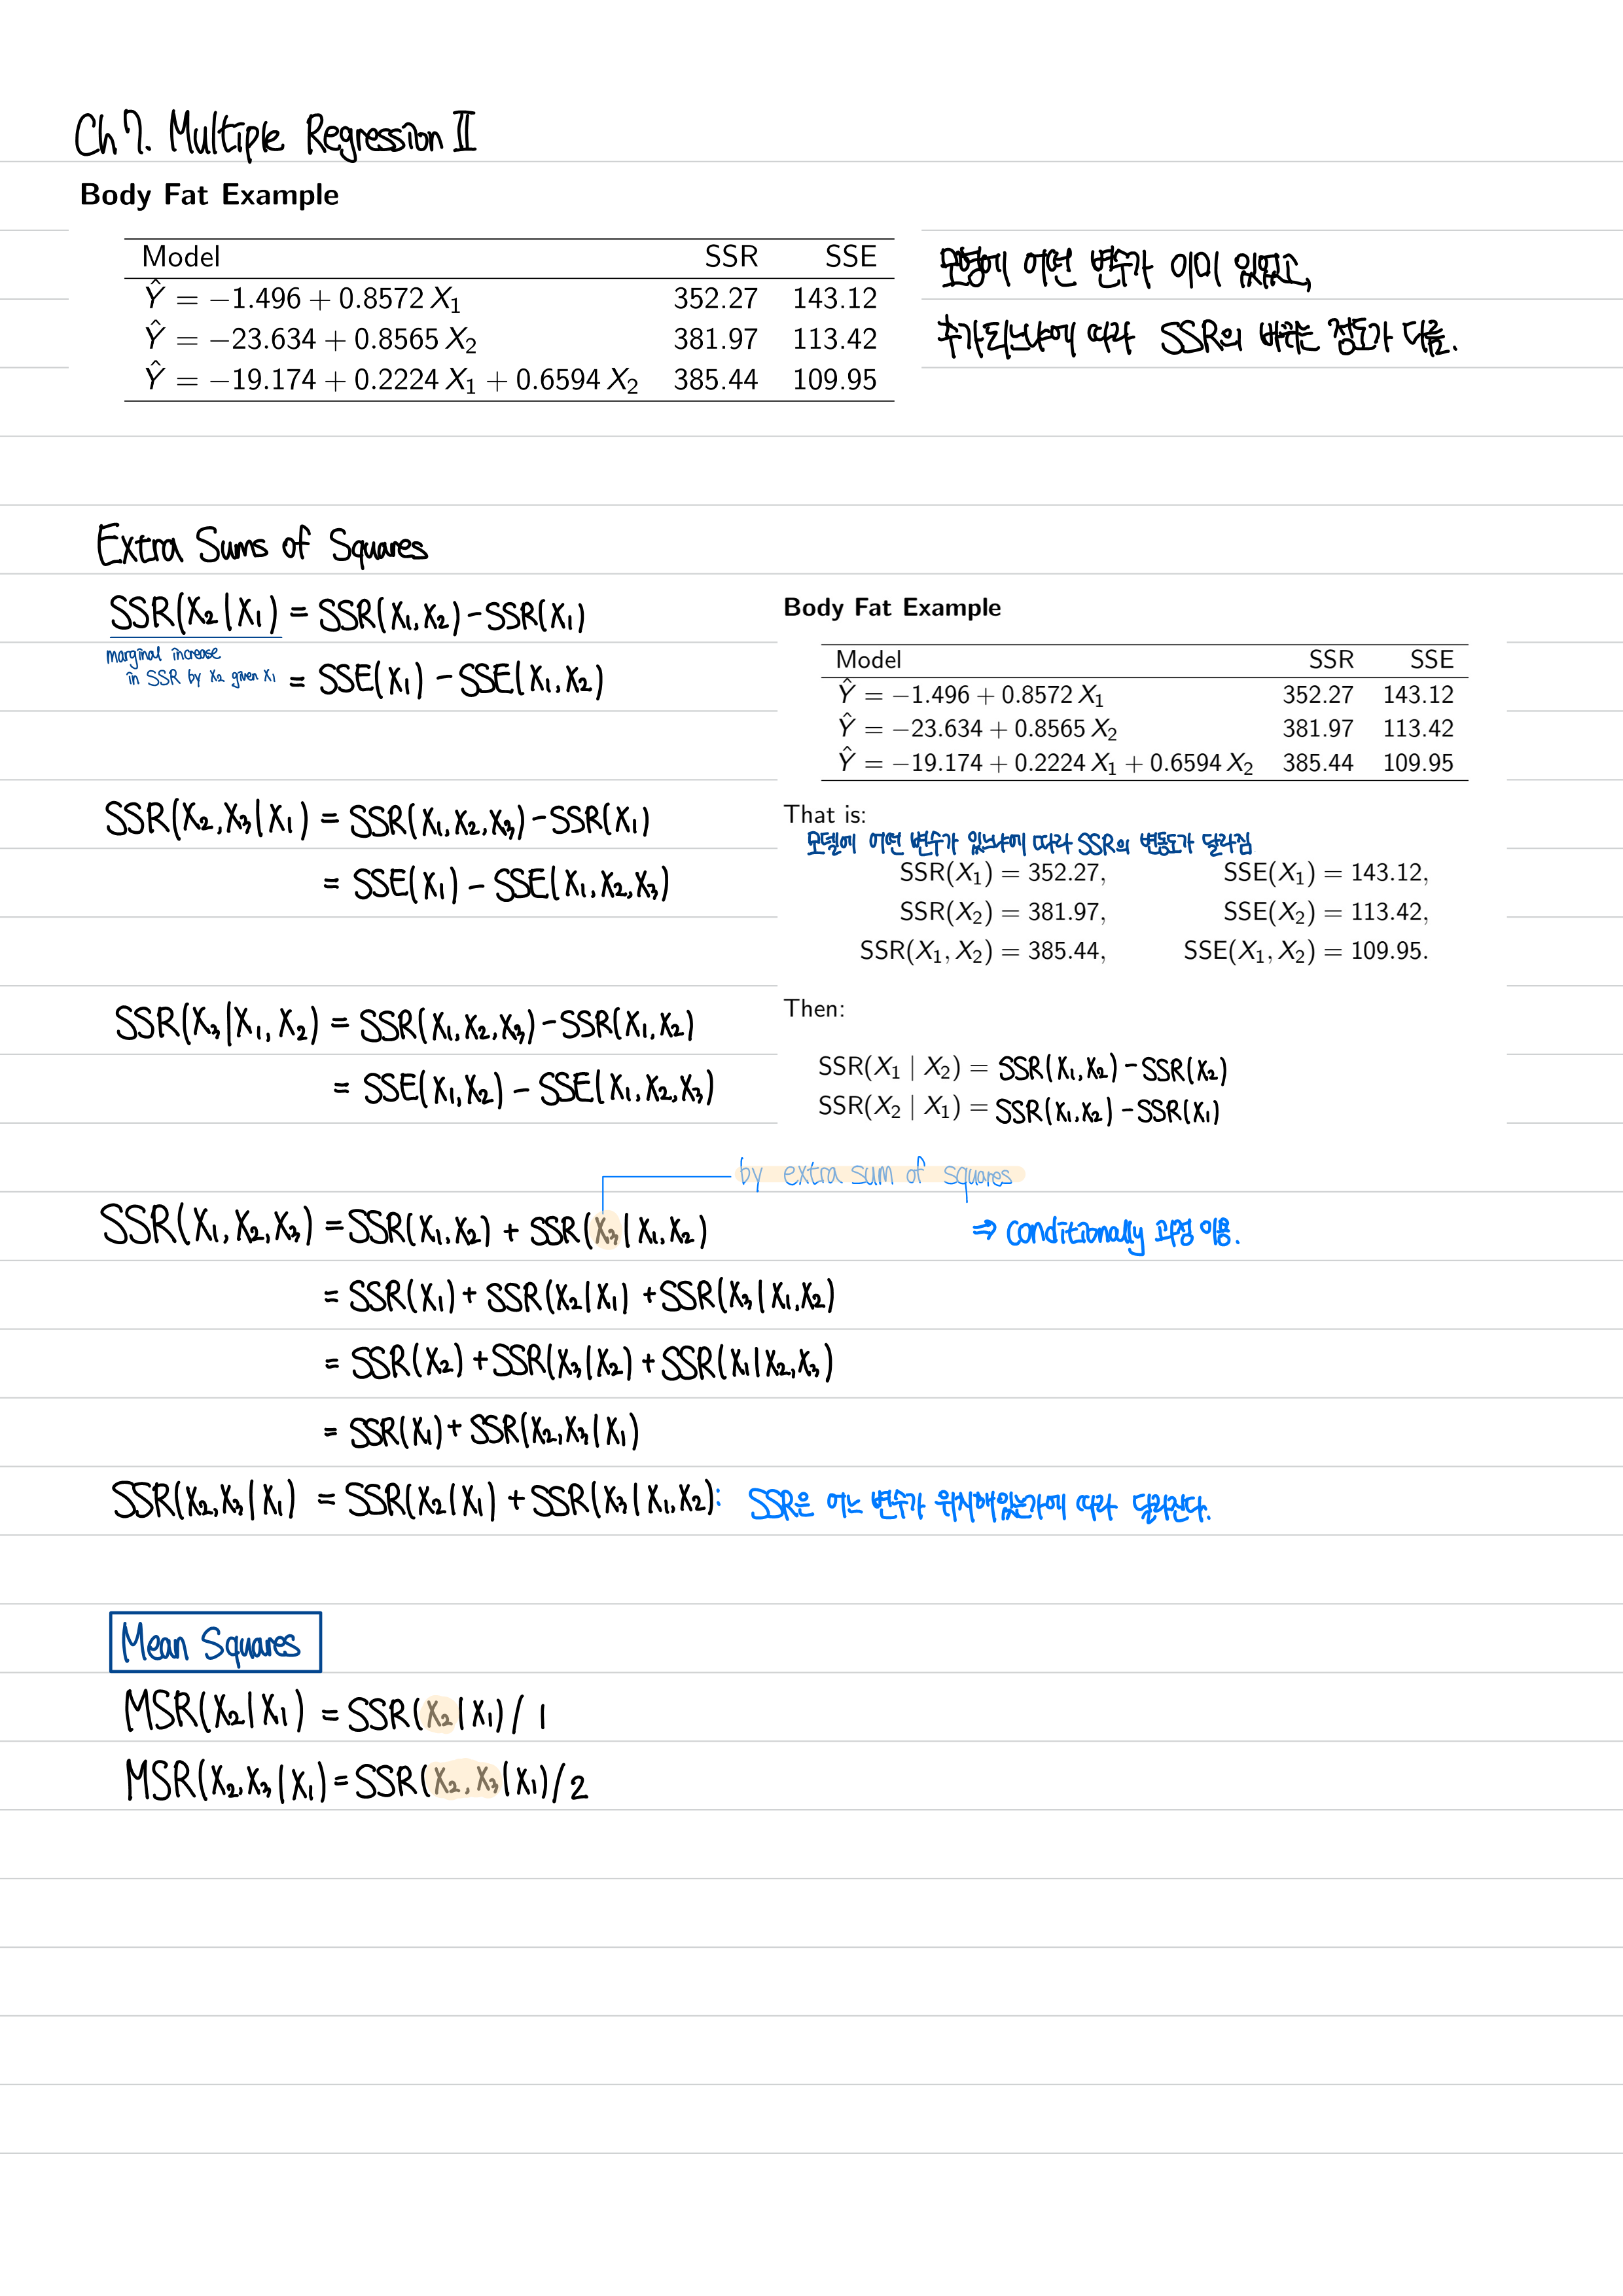 Ch 7. Multiple Regression Ⅱ
Body Fat Example
Model SSR SSE
Ŷ = −1.496 + 0.8572 X₁ 352.27 143.12
Ŷ = −23.634 + 0.8565 X₂ 381.97 113.42
Ŷ = −19.174 + 0.2224 X₁ + 0.6594 X₂ 385.44 109.95
모형에 어떤 변수가 이미 있었고,
추가되느냐에 따라 SSR의 바뀌는 정도가 다름.
Extra Sums of Squares
SSR(X₂|X₁) = SSR(X₁,X₂) − SSR(X₁)
marginal increase
in SSR by X₂ given X₁
= SSE(X₁) − SSE(X₁,X₂)
SSR(X₂,X₃|X₁) = SSR(X₁,X₂,X₃) − SSR(X₁)
= SSE(X₁) − SSE(X₁,X₂,X₃)
SSR(X₃|X₁,X₂) = SSR(X₁,X₂,X₃) − SSR(X₁,X₂)
= SSE(X₁,X₂) − SSE(X₁,X₂,X₃)
Body Fat Example
Model SSR SSE
Ŷ = −1.496 + 0.8572 X₁ 352.27 143.12
Ŷ = −23.634 + 0.8565 X₂ 381.97 113.42
Ŷ = −19.174 + 0.2224 X₁ + 0.6594 X₂ 385.44 109.95
That is:
모델에 어떤 변수가 있느냐에 따라 SSR의 변동도가 달라짐
SSR(X₁) = 352.27, SSE(X₁) = 143.12,
SSR(X₂) = 381.97, SSE(X₂) = 113.42,
SSR(X₁, X₂) = 385.44, SSE(X₁, X₂) = 109.95.
Then:
SSR(X₁ | X₂) = SSR(X₁,X₂) − SSR(X₂)
SSR(X₂ | X₁) = SSR(X₁,X₂) − SSR(X₁)
by extra sum of squares
SSR(X₁,X₂,X₃) = SSR(X₁,X₂) + SSR(X₃|X₁,X₂)
⇒ conditionally 과정 이용.
= SSR(X₁) + SSR(X₂|X₁) + SSR(X₃|X₁,X₂)
= SSR(X₂) + SSR(X₃|X₂) + SSR(X₁|X₂,X₃)
= SSR(X₁) + SSR(X₂,X₃|X₁)
SSR(X₂,X₃|X₁) = SSR(X₂|X₁) + SSR(X₃|X₁,X₂): SSR은 어느 변수가 위치해있는가에 따라 달라진다.
Mean Squares
MSR(X₂|X₁) = SSR(X₂|X₁) / 1
MSR(X₂,X₃|X₁) = SSR(X₂,X₃|X₁)/2